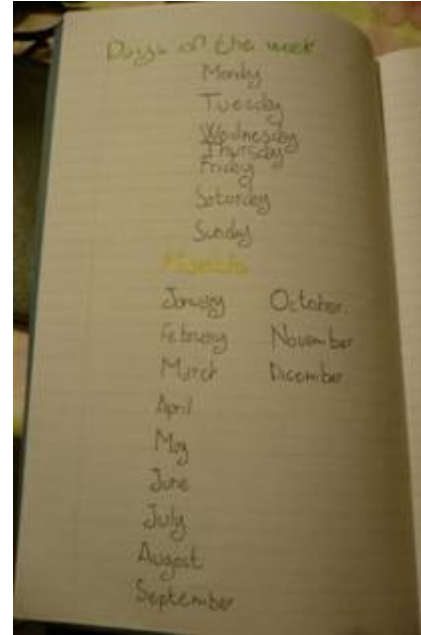 Days of the week
Monday
Tuesday
Wednesday
Thursday
Friday
Saturday
Sunday
Months
January
February
March
April
May
June
July
August
September
October.
November
Dicember